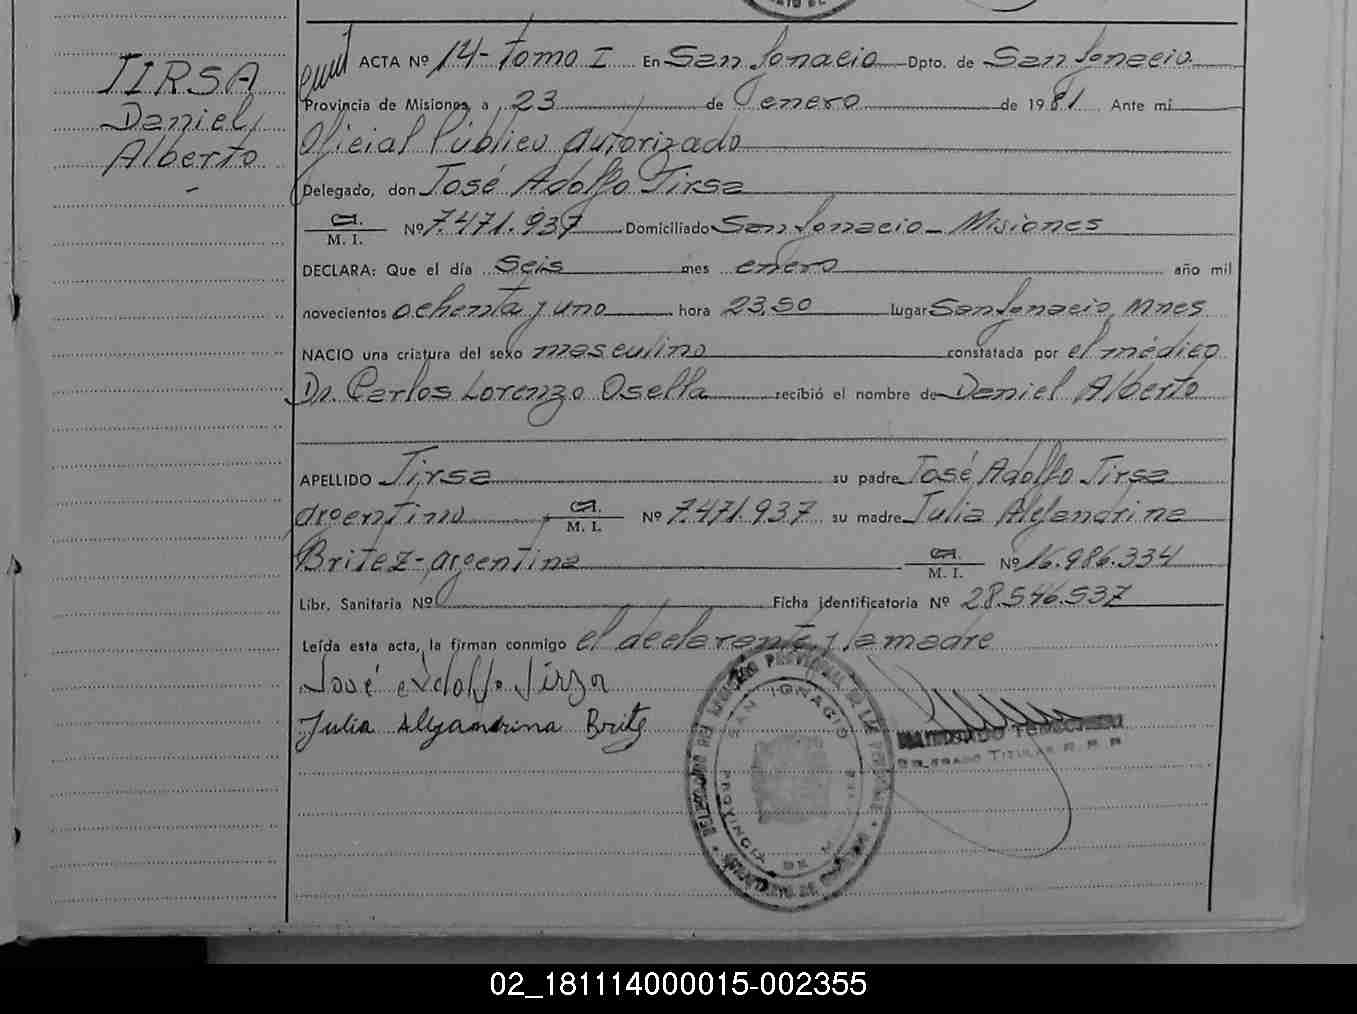 TIRSA
Daniel
Alberto
-
ACTA Nº 14- Tomo I En San Ignacio Dpto. de San Ignacio
Provincia de Misiones, a 23 de enero de 1981 Ante mí
Oficial Público autorizado
Delegado, don José Adolfo Tirsa
M. I. Nº 7.471.937 Domiciliado San Ignacio - Misiones
DECLARA: Que el día seis mes enero año mil
novecientos ochenta y uno hora 23,50 lugar San Ignacio, Mnes
NACIO una criatura del sexo masculino constatada por el médico
Dr. Carlos Lorenzo Osella recibió el nombre de Daniel Alberto
APELLIDO Tirsa su padre José Adolfo Tirsa
argentino M. I. Nº 7.471.937 su madre Julia Alejandrina
Britez - argentina M. I. Nº 16.986.334
Libr. Sanitaria Nº Ficha identificatoria Nº 28.546.537
Leída esta acta, la firman conmigo el declarante y la madre
José Adolfo Tirza
Julia Alejandrina Britez
SAN IGNACIO
PROVINCIA DE
DELEGADO TITULAR R. P. P.
02_181114000015-002355